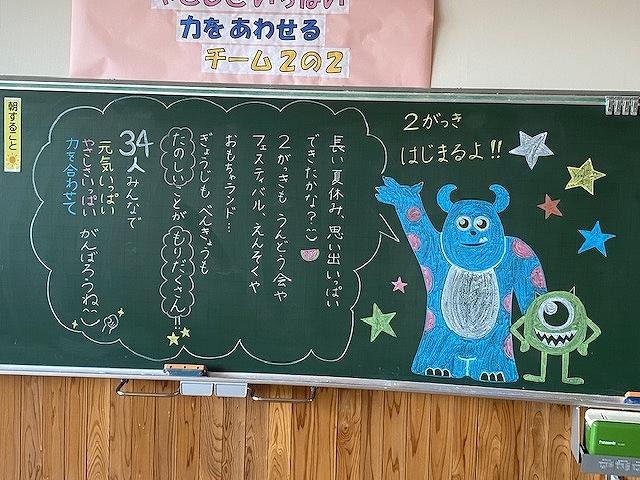 やさしさいっぱい
力をあわせる
チーム2の2
朝すること
2がっき
はじまるよ!!
長い夏休み、思い出いっぱい
できたかな?
2がっきも うんどう会や
フェスティバル、えんそくや
おもちゃランド…
ぎょうじも べんきょうも
たのしいことが もりだくさん!!
34人みんなで
元気いっぱい
やさしさいっぱい がんばろうね
力を合わせて
Panasonic